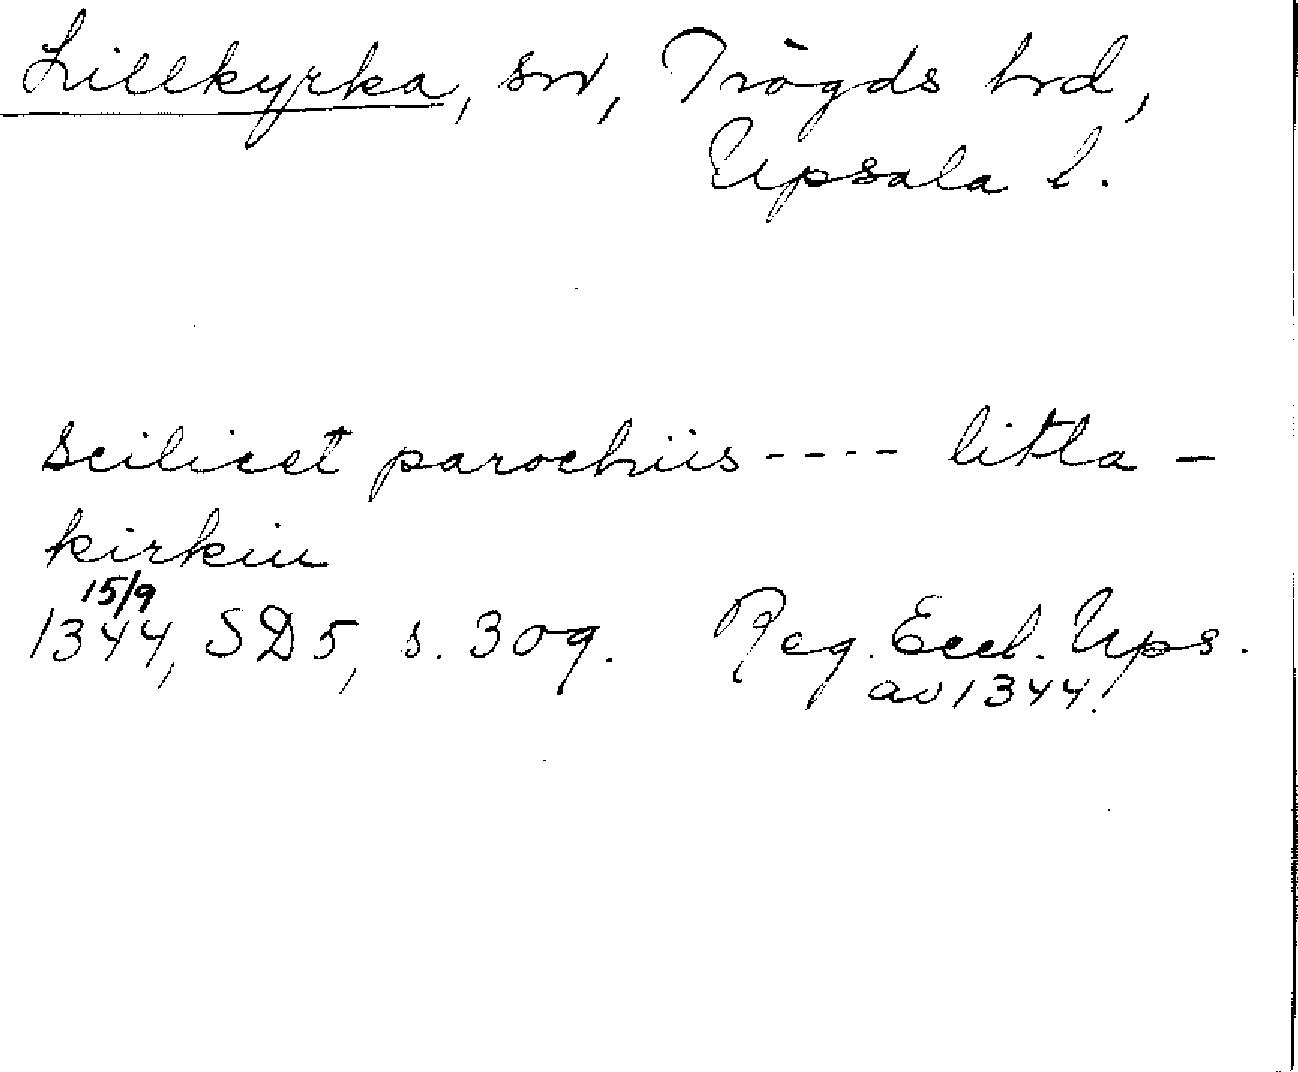 Lillkyrka, sn, Trögds hd,
Upsala l.
scilicet parochiis ---- litla -
kirkiu
15/9
1344, SD5, s. 309. Reg. Eccl. Ups.
av 1344.